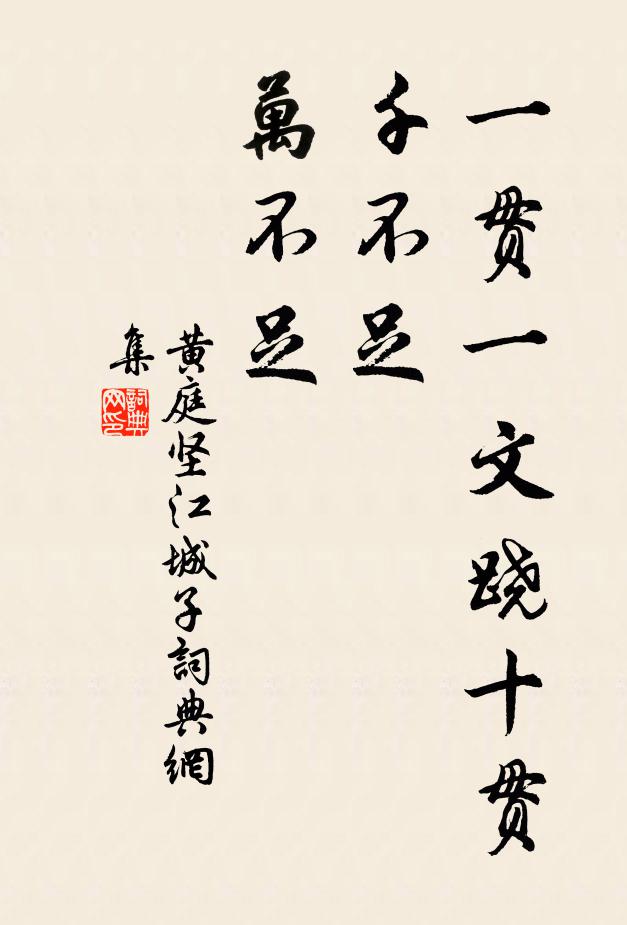 一贯一文跷十贯
千不足
萬不足
黄庭坚江城子詞典網
集
詞典
网印